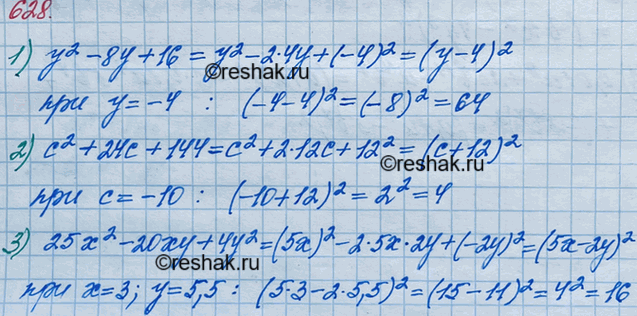 628.
1) y² - 8y + 16 = y² - 2·4y + (-4)² = (y - 4)²
©reshak.ru
при y = -4 : (-4-4)² = (-8)² = 64
2) c² + 24c + 144 = c² + 2·12c + 12² = (c + 12)²
©reshak.ru
при c = -10 : (-10 + 12)² = 2² = 4
3) 25x² - 20xy + 4y² = (5x)² - 2·5x·2y + (-2y)² = (5x - 2y)²
©reshak.ru
при x = 3; y = 5,5 : (5·3 - 2·5,5)² = (15 - 11)² = 4² = 16